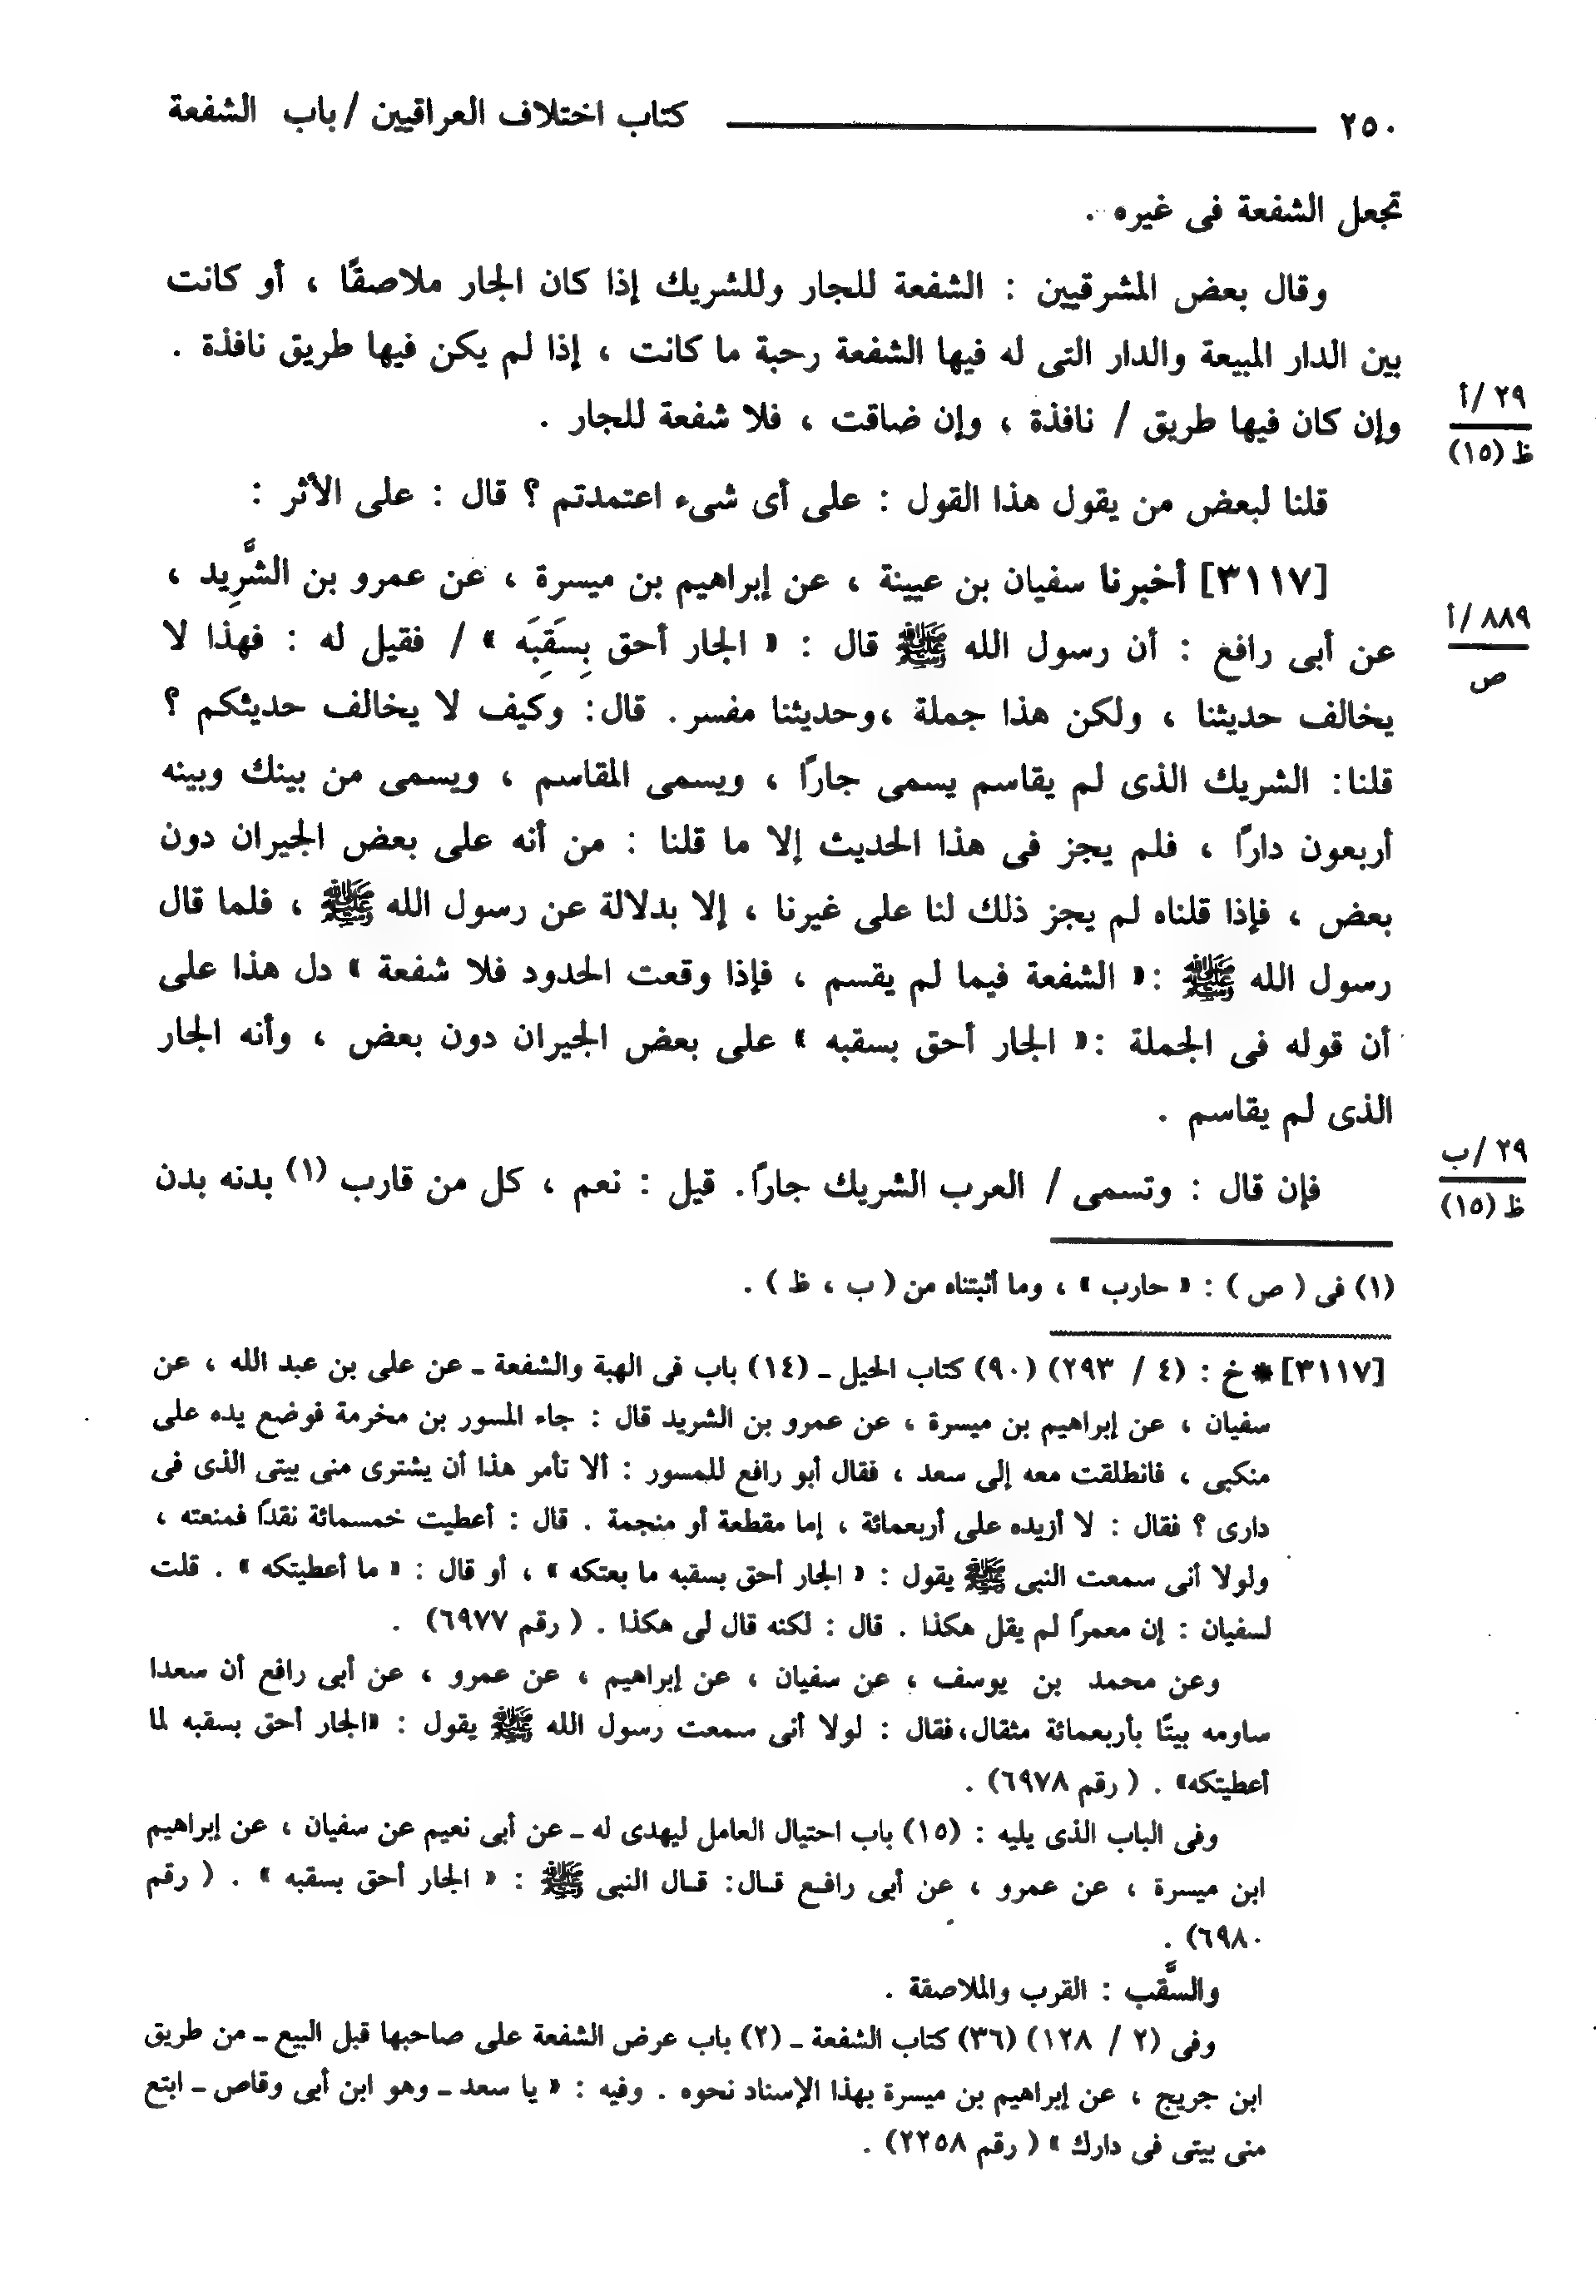 ٢٥٠ كتاب اختلاف العراقيين / باب الشفعة
تجعل الشفعة فى غيره .
وقال بعض المشرقيين : الشفعة للجار وللشريك إذا كان الجار ملاصقًا ، أو كانت
بين الدار المبيعة والدار التى له فيها الشفعة رحبة ما كانت ، إذا لم يكن فيها طريق نافذة .
وإن كان فيها طريق / نافذة ، وإن ضاقت ، فلا شفعة للجار .
٢٩ /أ
ظ (١٥)
قلنا لبعض من يقول هذا القول : على أى شىء اعتمدتم ؟ قال : على الأثر :
[٣١١٧] أخبرنا سفيان بن عيينة ، عن إبراهيم بن ميسرة ، عن عمرو بن الشَّرِيد ،
عن أبى رافع : أن رسول الله ﷺ قال : « الجار أحق بِسَقَبِه » / فقيل له : فهذا لا
٨٨٩ /أ
ص
يخالف حديثنا ، ولكن هذا جملة ،وحديثنا مفسر. قال: وكيف لا يخالف حديثكم ؟
قلنا: الشريك الذى لم يقاسم يسمى جارًا ، ويسمى المقاسم ، ويسمى من بينك وبينه
أربعون دارًا ، فلم يجز فى هذا الحديث إلا ما قلنا : من أنه على بعض الجيران دون
بعض ، فإذا قلناه لم يجز ذلك لنا على غيرنا ، إلا بدلالة عن رسول الله ﷺ ، فلما قال
رسول الله ﷺ :« الشفعة فيما لم يقسم ، فإذا وقعت الحدود فلا شفعة » دل هذا على
أن قوله فى الجملة :« الجار أحق بسقبه » على بعض الجيران دون بعض ، وأنه الجار
الذى لم يقاسم .
فإن قال : وتسمى / العرب الشريك جارًا. قيل : نعم ، كل من قارب (١) بدنه بدن
٢٩ /ب
ظ (١٥)
(١) فى ( ص ) : « حارب » ، وما أثبتناه من ( ب ، ظ ) .
[٣١١٧]* خ : (٤ / ٢٩٣) (٩٠) كتاب الحيل ـ (١٤) باب فى الهبة والشفعة ـ عن على بن عبد الله ، عن
سفيان ، عن إبراهيم بن ميسرة ، عن عمرو بن الشريد قال : جاء المسور بن مخرمة فوضع يده على
منكبى ، فانطلقت معه إلى سعد ، فقال أبو رافع للمسور : ألا تأمر هذا أن يشترى منى بيتى الذى فى
دارى ؟ فقال : لا أزيده على أربعمائة ، إما مقطعة أو منجمة . قال : أعطيت خمسمائة نقدًا فمنعته ،
ولولا أنى سمعت النبى ﷺ يقول : « الجار أحق بسقبه ما بعتكه » ، أو قال : « ما أعطيتكه » . قلت
لسفيان : إن معمرًا لم يقل هكذا . قال : لكنه قال لى هكذا . ( رقم ٦٩٧٧) .
وعن محمد بن يوسف ، عن سفيان ، عن إبراهيم ، عن عمرو ، عن أبى رافع أن سعدا
ساومه بيتًا بأربعمائة مثقال،فقال : لولا أنى سمعت رسول الله ﷺ يقول : «الجار أحق بسقبه لما
أعطيتكه» . ( رقم ٦٩٧٨) .
وفى الباب الذى يليه : (١٥) باب احتيال العامل ليهدى له ـ عن أبى نعيم عن سفيان ، عن إبراهيم
ابن ميسرة ، عن عمرو ، عن أبى رافع قال: قال النبى ﷺ : « الجار أحق بسقبه » . ( رقم
٦٩٨٠) .
والسَّقب : القرب والملاصقة .
وفى (٢ / ١٢٨) (٣٦) كتاب الشفعة ـ (٢) باب عرض الشفعة على صاحبها قبل البيع ـ من طريق
ابن جريج ، عن إبراهيم بن ميسرة بهذا الإسناد نحوه . وفيه : « يا سعد ـ وهو ابن أبى وقاص ـ ابتع
منى بيتى فى دارك » ( رقم ٢٢٥٨) .